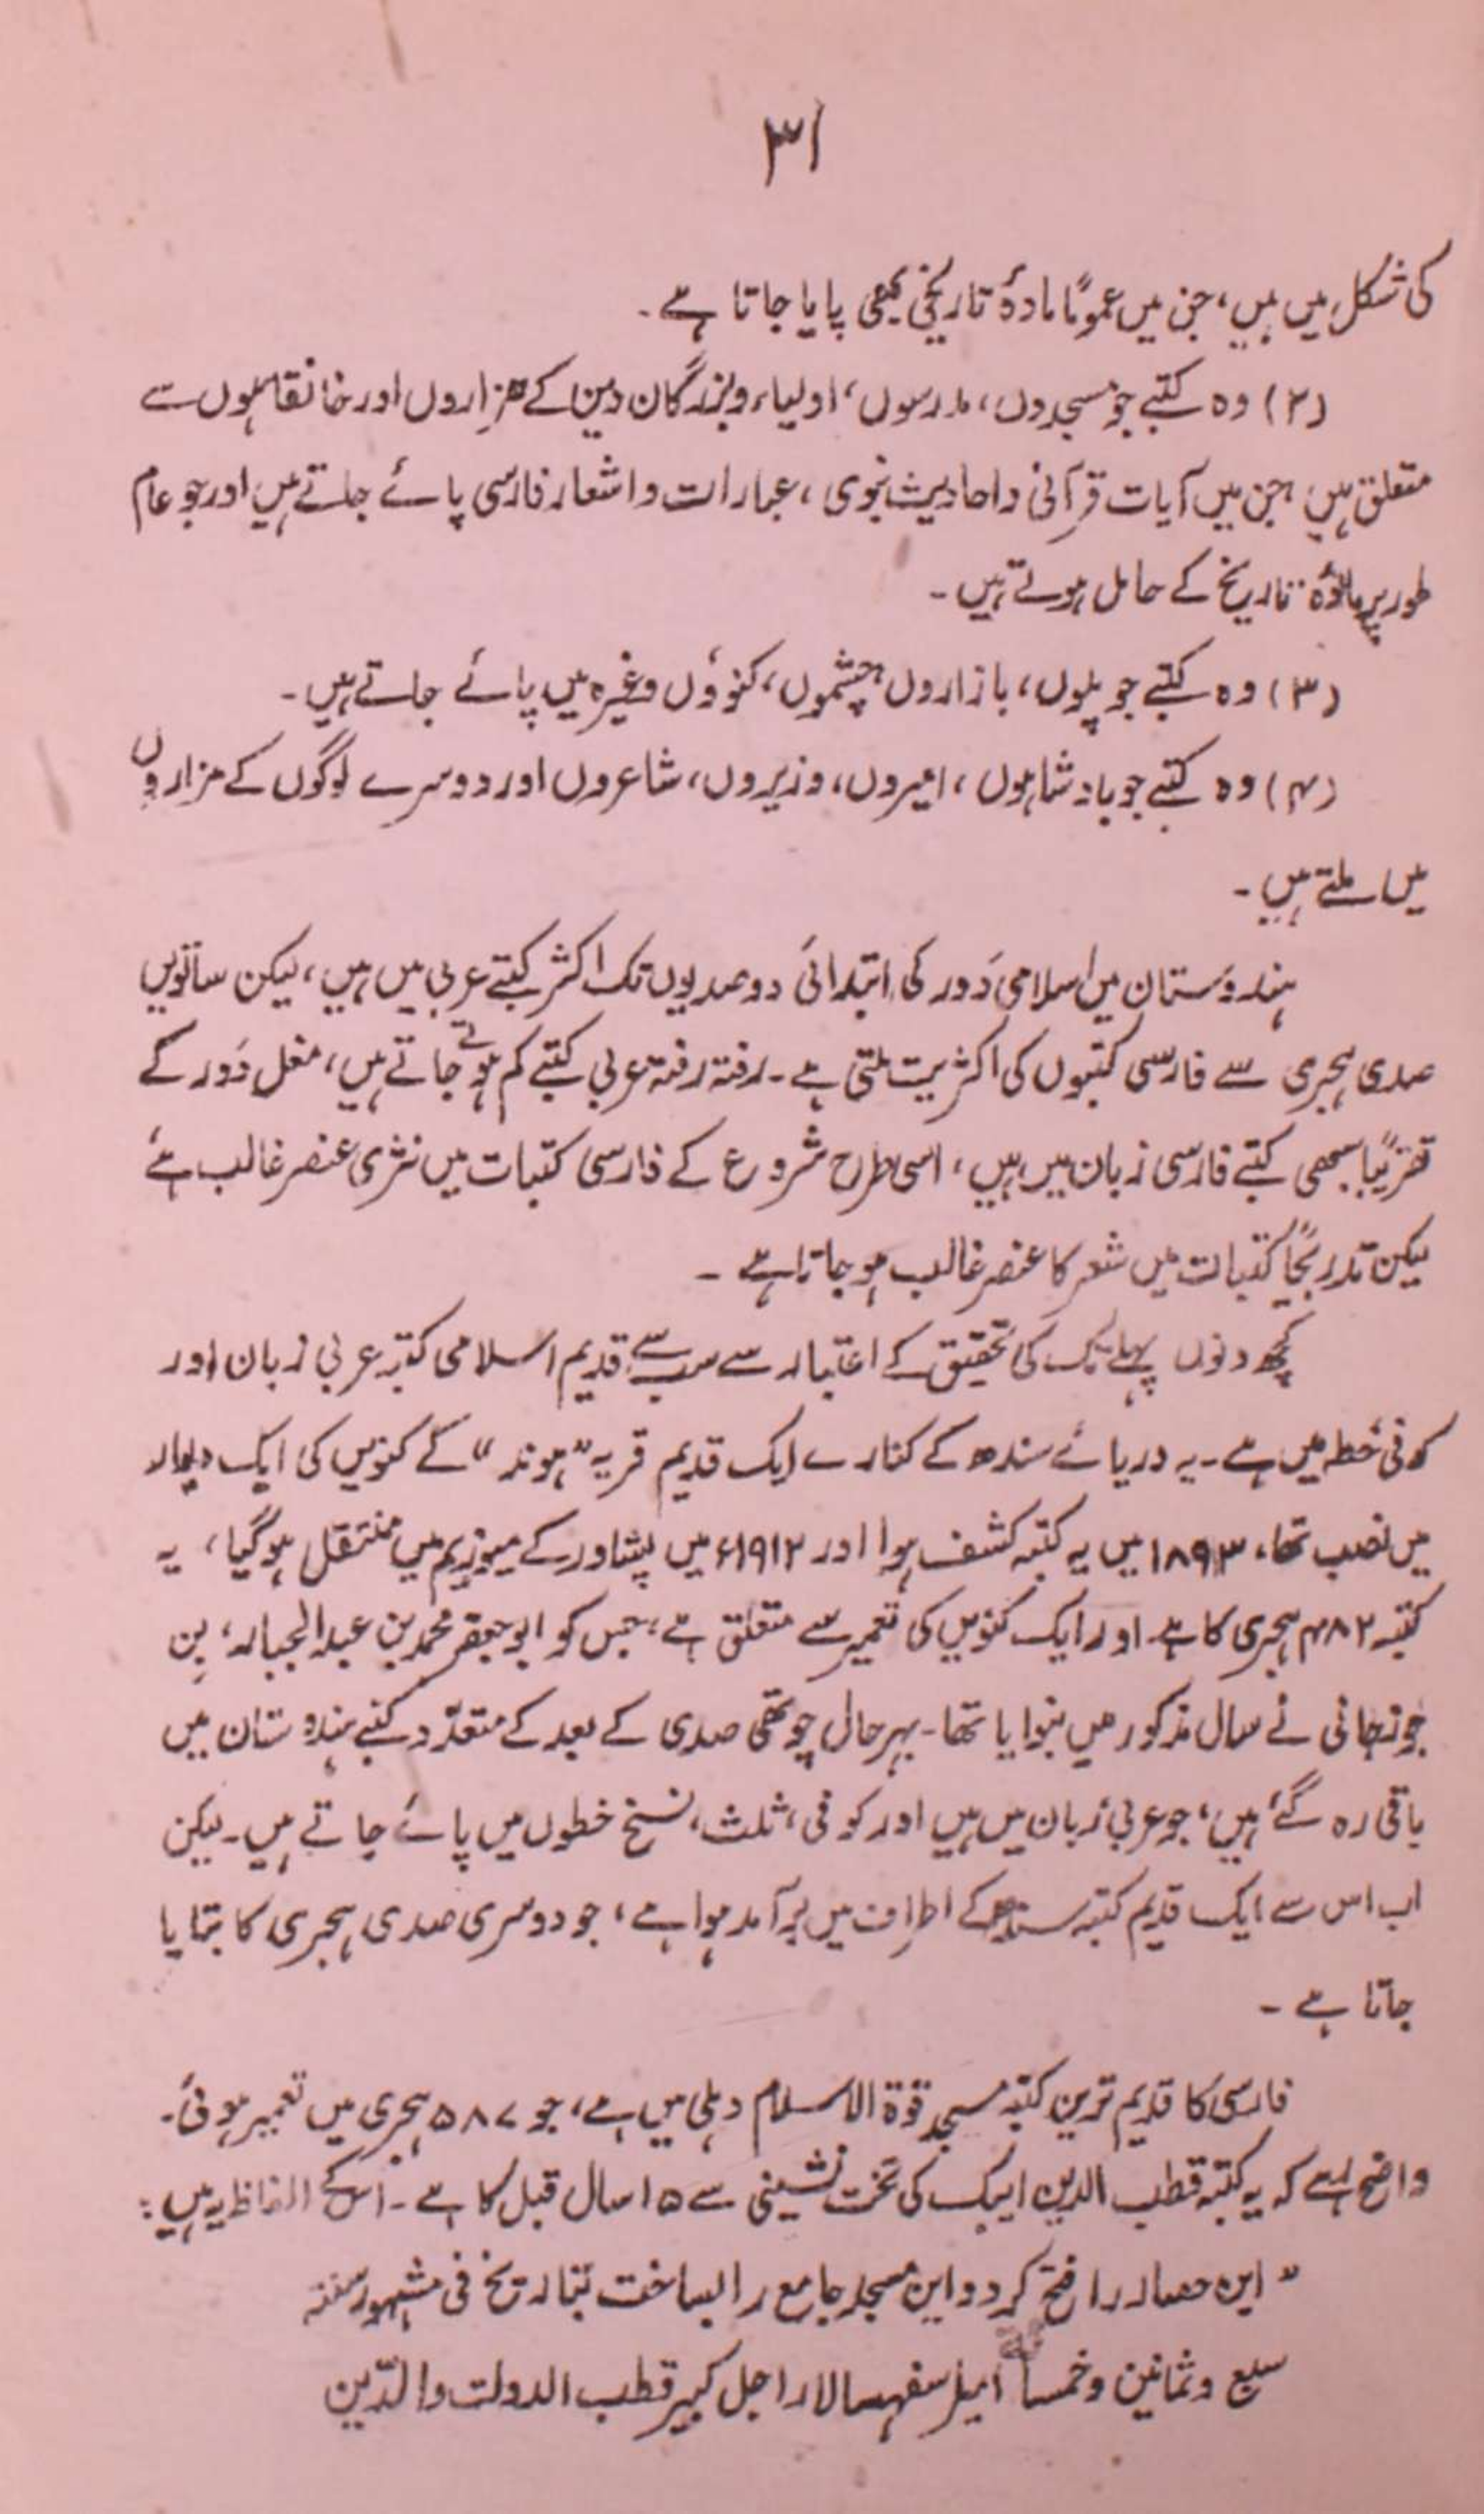 ۳۱
کی شکل میں ہیں، جن میں عموماً مادۂ تاریخی بھی پایا جاتا ہے۔
(۲) وہ کتبے جو مسجدوں، مدرسوں، اولیاء و بزرگان دین کے مزاروں اور خانقاہوں سے
متعلق ہیں جن میں آیات قرآنی و احادیث نبوی، عبارات و اشعار فارسی پائے جاتے ہیں اور جو عام
طور پر مادّہ تاریخ کے حامل ہوتے ہیں۔
(۳) وہ کتبے جو پلوں، بازاروں، چشموں، کنوؤں وغیرہ میں پائے جاتے ہیں۔
(۴) وہ کتبے جو بادشاہوں، امیروں، وزیروں، شاعروں اور دوسرے لوگوں کے مزاروں
میں ملتے ہیں۔
ہندوستان میں اسلامی دَور کی ابتدائی دو صدیوں تک اکثر کتبے عربی میں ہیں، لیکن ساتویں
صدی ہجری سے فارسی کتبوں کی اکثریت ملتی ہے۔ رفتہ رفتہ عربی کتبے کم ہوتے جاتے ہیں، مغل دَور کے
تقریباً سبھی کتبے فارسی زبان میں ہیں، اسی طرح شروع کے فارسی کتبات میں نثری عنصر غالب ہے
لیکن تدریجاً کتبات میں شعر کا عنصر غالب ہو جاتا ہے۔
کچھ دنوں پہلے تک کی تحقیق کے اعتبار سے سب سے قدیم اسلامی کتبہ عربی زبان اور
کوفی خطہ میں ہے۔ یہ دریائے سندھ کے کنارے ایک قدیم قریہ "ہوند" کے کنویں کی ایک دیوار
میں نصب تھا، ۱۸۹۳ میں یہ کتبہ کشف ہوا اور ۱۹۱۲ء میں پشاور کے میوزیم میں منتقل ہو گیا، یہ
کتبہ ۴۸۲ ہجری کا ہے اور ایک کنویں کی تعمیر سے متعلق ہے، جس کو ابوجعفر محمد بن عبدالجبار، بِن
جوزجانی نے سال مذکور میں بنوایا تھا۔ بہرحال چوتھی صدی کے بعد کے متعدّد کتبے ہندوستان میں
باقی رہ گئے ہیں، جو عربی زبان میں ہیں اور کوفی، ثلث، نسخ خطوں میں پائے جاتے ہیں۔ لیکن
اب اس سے ایک قدیم کتبہ سندھ کے اطراف میں برآمد ہوا ہے، جو دوسری صدی ہجری کا بتایا
جاتا ہے۔
فارسی کا قدیم ترین کتبہ مسجد قوۃ الاسلام دہلی میں ہے، جو ۵۸۷ ہجری میں تعمیر ہوئی۔
واضح رہے کہ یہ کتبہ قطب الدین ایبک کی تخت نشینی سے ۱۵ سال قبل کا ہے۔ اس کے الفاظ یہ ہیں:
"این حصار را فتح کرد و این مسجد جامع را بساخت بتاریخ فی مشہور سنۃ
سبع و ثمانین و خمسا امیر اسفہسالار اجل کبیر قطب الدولت والدّین